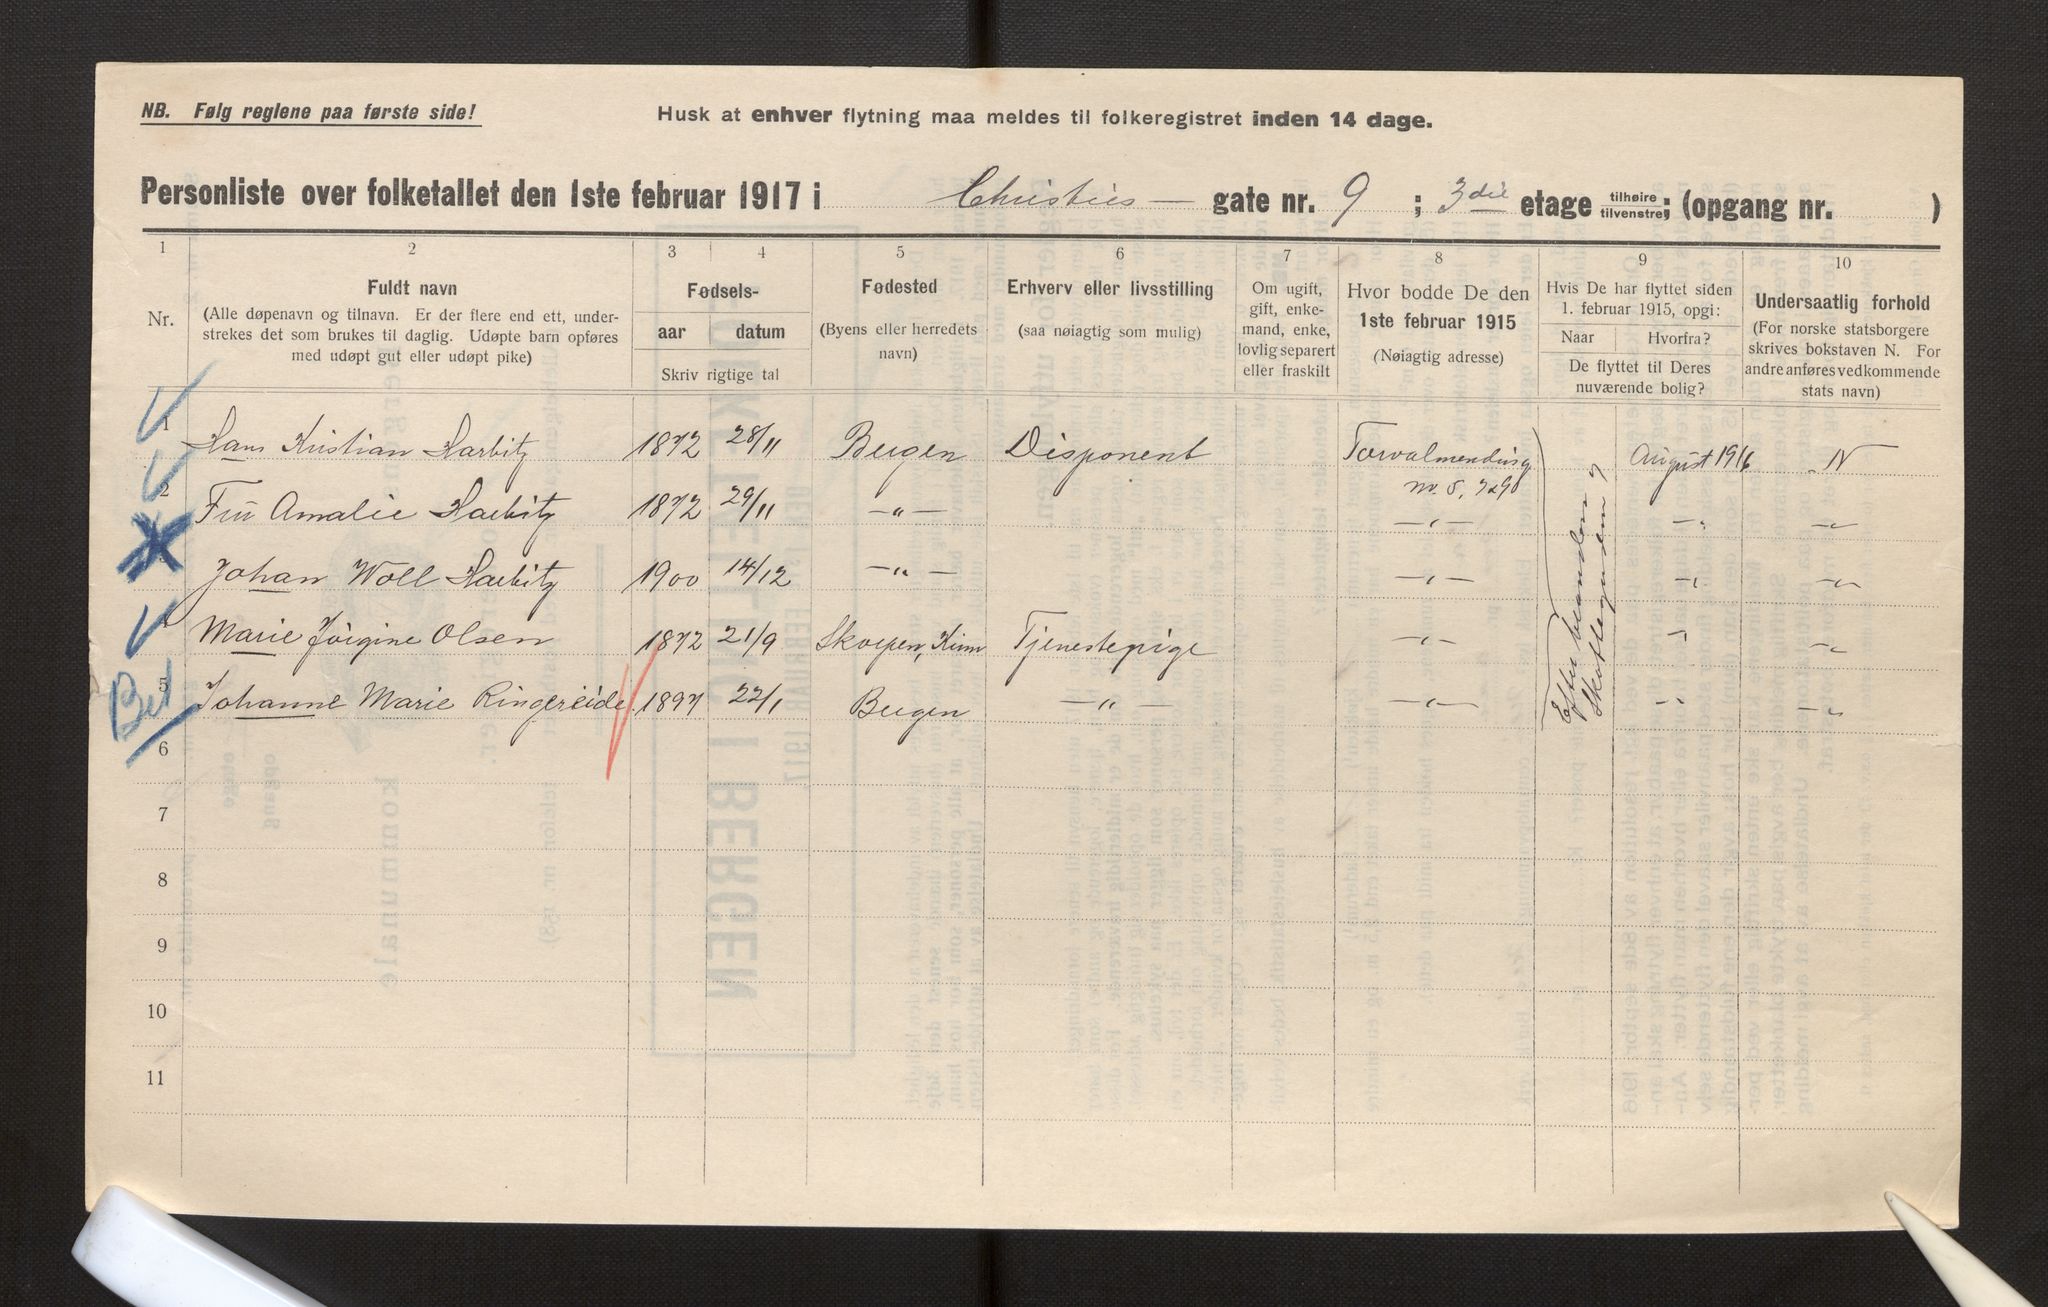 NB. Følg reglene paa første side!
Husk at enhver flytning maa meldes til folkeregistret inden 14 dage.
Personliste over folketallet den 1ste februar 1917 i Christies — gate nr. 9 ; 3die etage tilhøire tilvenstre; (opgang nr. )
1 2 3 4 5 6 7 8 9 10
Nr.
Fuldt navn
(Alle døpenavn og tilnavn. Er der flere end ett, under-
strekes det som brukes til daglig. Udøpte barn opføres
med udøpt gut eller udøpt pike)
Fødsels-
aar datum
Skriv rigtige tal
Fødested
(Byens eller herredets
navn)
Erhverv eller livsstilling
(saa nøiagtig som mulig)
Om ugift,
gift, enke-
mand, enke,
lovlig separert
eller fraskilt
Hvor bodde De den
1ste februar 1915
(Nøiagtig adresse)
Hvis De har flyttet siden
1. februar 1915, opgi:
Naar Hvorfra?
De flyttet til Deres
nuværende bolig?
Undersaatlig forhold
(For norske statsborgere
skrives bokstaven N. For
andre anføres vedkommende
stats navn)
1 Hans Kristian Harbitz 1872 28/11 Bergen Disponent Torvalmending August 1916 N
nr. 5,
2 Fru Amalie Harbitz 1872 29/11 —"— —"— " —"—
Johan Woll Harbitz 1900 14/12 —"— —"— " —"—
4 Marie Jörgine Olsen 1872 21/9 Skorpen, Kinn Tjenestepige —"— " —"—
5 Johanne Marie Ringereide 1897 22/1 Bergen —"— —"— " —"—
Bet
6
7
8
9
10
11